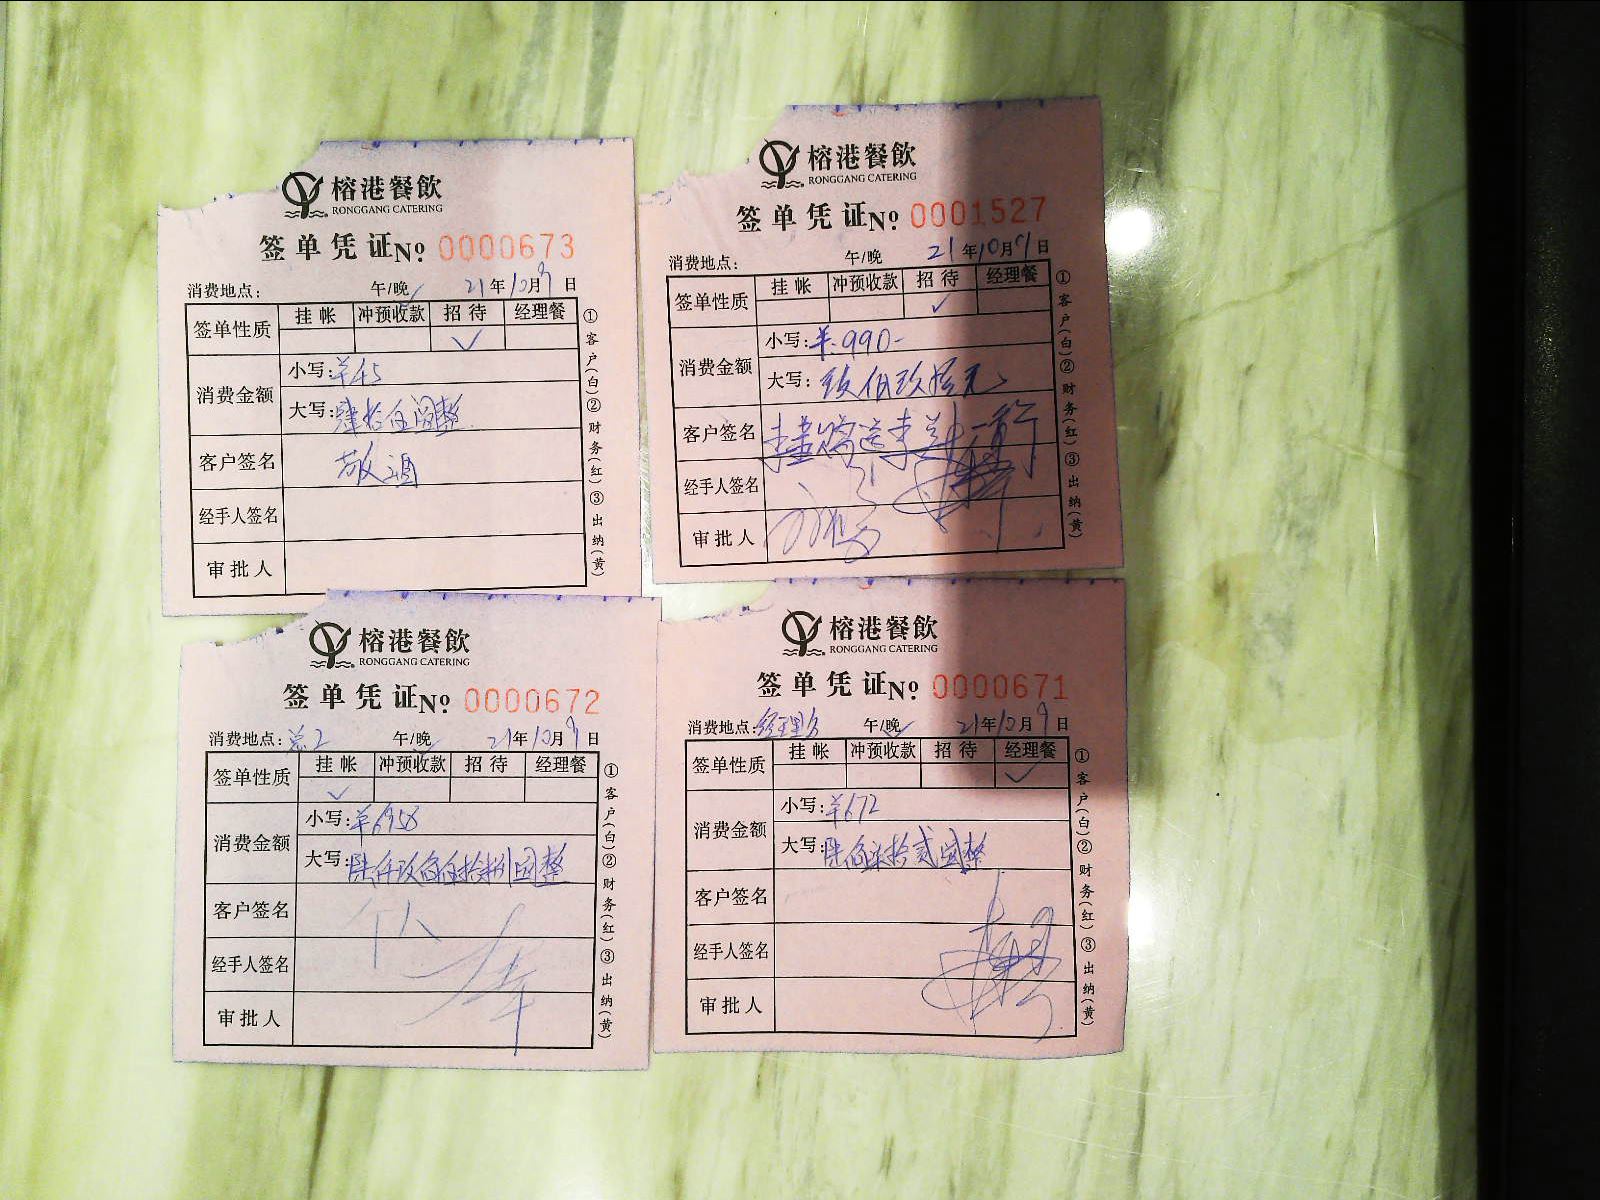 榕港餐飲
RONGGANG CATERING
签单凭证No 0000673
消费地点: 午/晚 21年10月9日
签单性质 挂帐 冲预收款 招待 经理餐
消费金额 小写:¥45
大写:肆拾伍圆整
客户签名 敬酒
经手人签名
审批人
①客户(白)②财务(红)③出纳(黄)
榕港餐飲
RONGGANG CATERING
签单凭证No 0001527
消费地点: 午/晚 21年10月9日
签单性质 挂帐 冲预收款 招待 经理餐
消费金额 小写:¥:990-
大写:玖佰玖拾元
客户签名
经手人签名
审批人
①客户(白)②财务(红)③出纳(黄)
榕港餐飲
RONGGANG CATERING
签单凭证No 0000672
消费地点: 午/晚 21年10月9日
签单性质 挂帐 冲预收款 招待 经理餐
消费金额 小写:¥6958
大写:陆仟玖佰伍拾捌圆整
客户签名
经手人签名
审批人
①客户(白)②财务(红)③出纳(黄)
榕港餐飲
RONGGANG CATERING
签单凭证No 0000671
消费地点: 午/晚 21年10月9日
签单性质 挂帐 冲预收款 招待 经理餐
消费金额 小写:¥672
大写:陆佰柒拾贰圆整
客户签名
经手人签名
审批人
①客户(白)②财务(红)③出纳(黄)